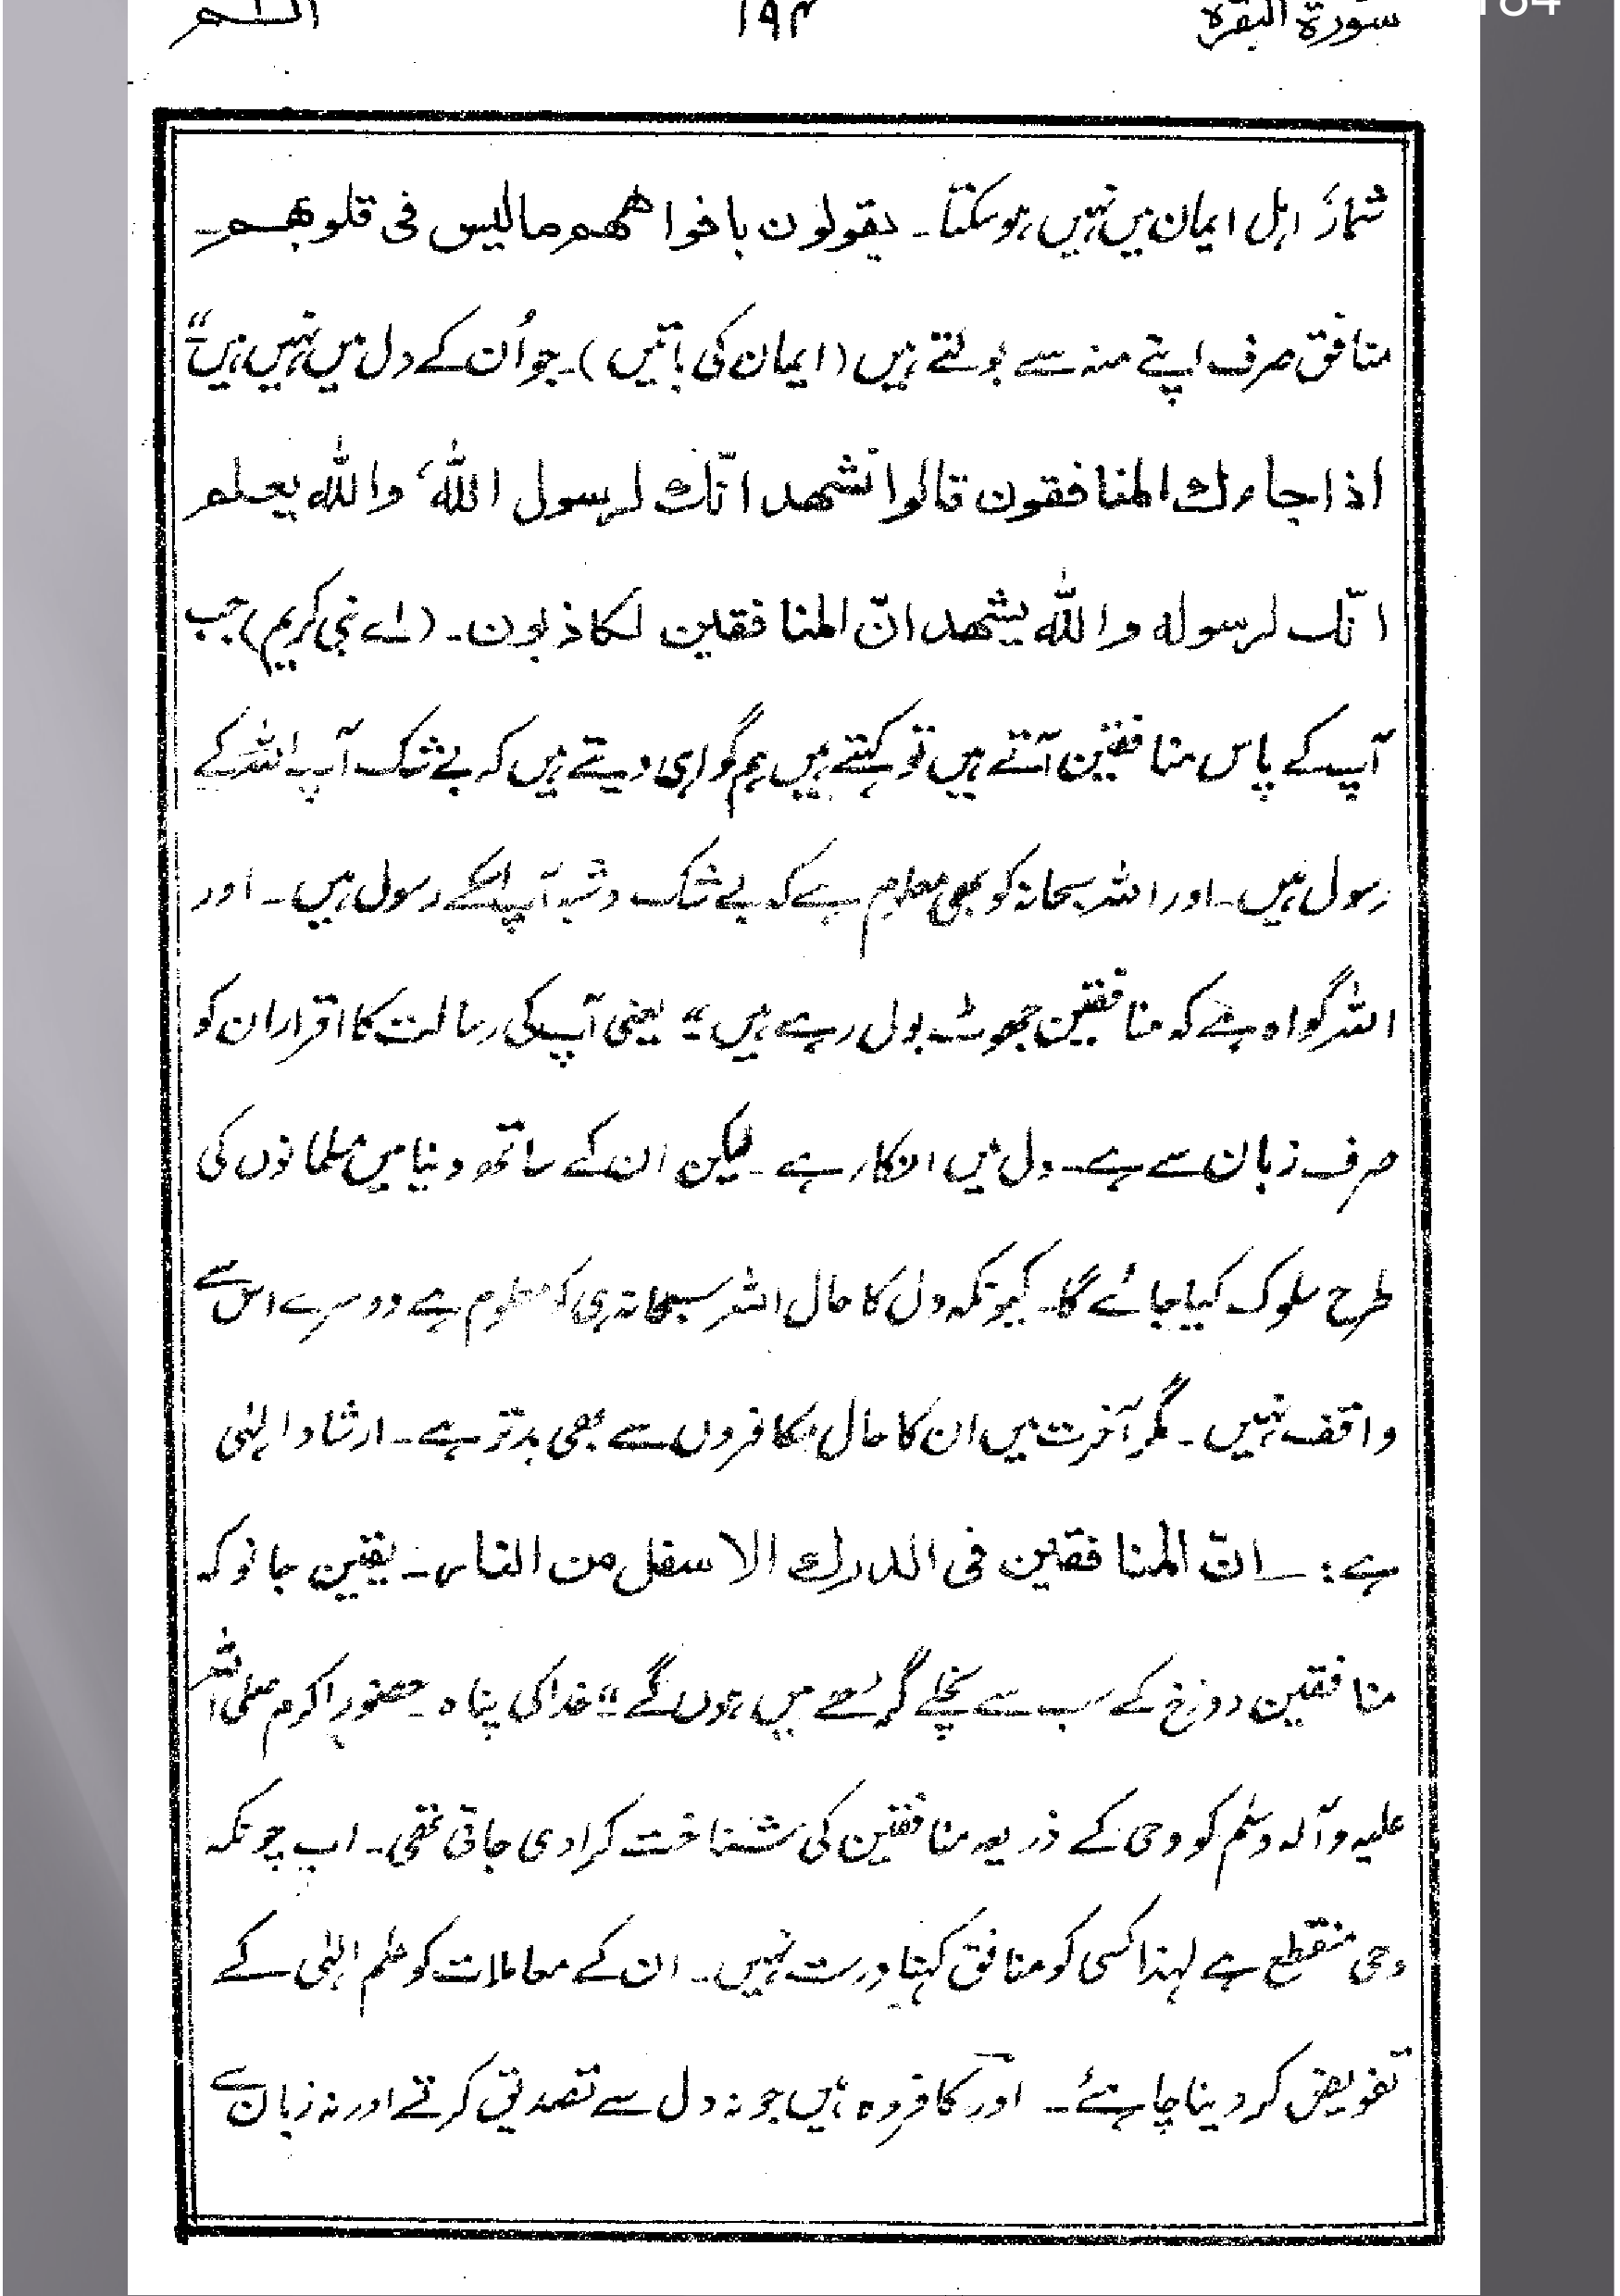 سورۃ البقرۃ ۱۹۴ الٓـمّ
شمارَ اہل ایمان میں نہیں ہو سکتا۔ یقولون بافواھھم مالیس فی قلوبھم۔
منافق صرف اپنے منہ سے بولتے ہیں (ایمان کی باتیں)۔ جو اُن کے دل میں نہیں ہیں“
اذا جاءک المنافقون قالوا نشھد انّک لرسول اللہ، واللہ یعلم
انّک لرسولہ واللہ یشھد انّ المنافقین لکاذبون۔ (اے نبی کریم) جب
آپ کے پاس منافقین آتے ہیں تو کہتے ہیں ہم گواہی دیتے ہیں کہ بے شک آپ اللہ کے
رسول ہیں۔ اور اللہ سبحانہ کو بھی معلوم ہے کہ بے شک و شبہ آپ اسکے رسول ہیں۔ اور
اللہ گواہ ہے کہ منافقین جھوٹ بول رہے ہیں“ یعنی آپ کی رسالت کا اقرار ان کو
صرف زبان سے ہے۔ دل میں انکار ہے۔ لیکن ان کے ساتھ دنیا میں مسلمانوں کی
طرح سلوک کیا جائے گا۔ کیونکہ دل کا حال اللہ سبحانہ ہی کو معلوم ہے دوسرے اس سے
واقف نہیں۔ مگر آخرت میں ان کا حال کافروں سے بھی بدتر ہے۔ ارشاد الہٰی
ہے: ۔ انّ المنافقین فی الدرک الاسفل من النار۔ یقین جانو کہ
منافقین دوزخ کے سب سے نچلے گڑھے میں ہوں گے“ خدا کی پناہ۔ حضورِ اکرم صلی اللہ
علیہ و آلہ وسلم کو وحی کے ذریعہ منافقین کی شناخت کرا دی جاتی تھی۔ اب چونکہ
وحی منقطع ہے لہٰذا کسی کو منافق کہنا درست نہیں۔ ان کے معاملات کو علم الٰہی کے
تفویض کر دینا چاہئے۔ اور کافر وہ ہیں جو نہ دل سے تصدیق کرتے اور نہ زبان سے